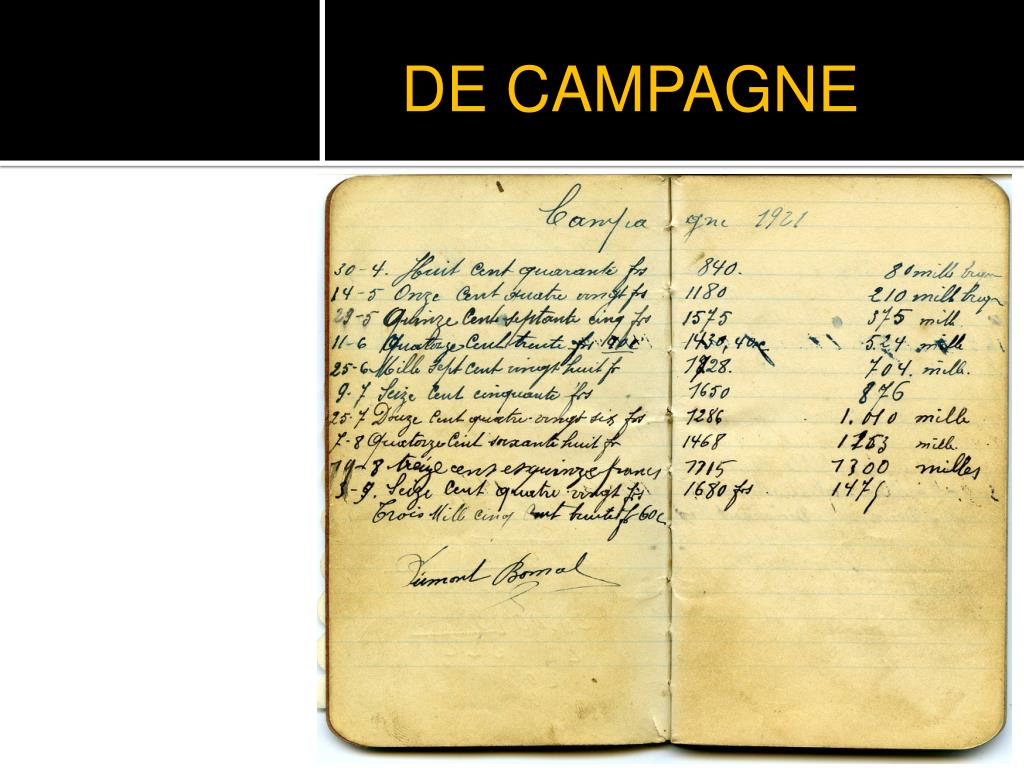 DE CAMPAGNE
Campagne 1921
30-4. Huit cent quarante frs 840. 80 mille
14-5 Onze Cent quatre vingt frs 1180 210 mill
29-5 Quinze Cent septante cinq frs 1575 375 mill.
11-6 Quatorze Cent trente frs 1430, 524 mille
25-6 Mille Sept Cent vingt huit fr 1728. 704. mille.
9-7 Seize Cent cinquante frs 1650 876
25-7 Douze Cent quatre-vingt six frs 1286 1.010 mille
7-8 Quatorze Cent soixante huit fr 1468 1153 mille.
19-8 treize cent et quinze francs 1315 1300 milles
3-9. Seize Cent quatre vingt frs 1680 frs 1475
Trois Mille cinq Cent trente fr 60c
Dumont Bomal